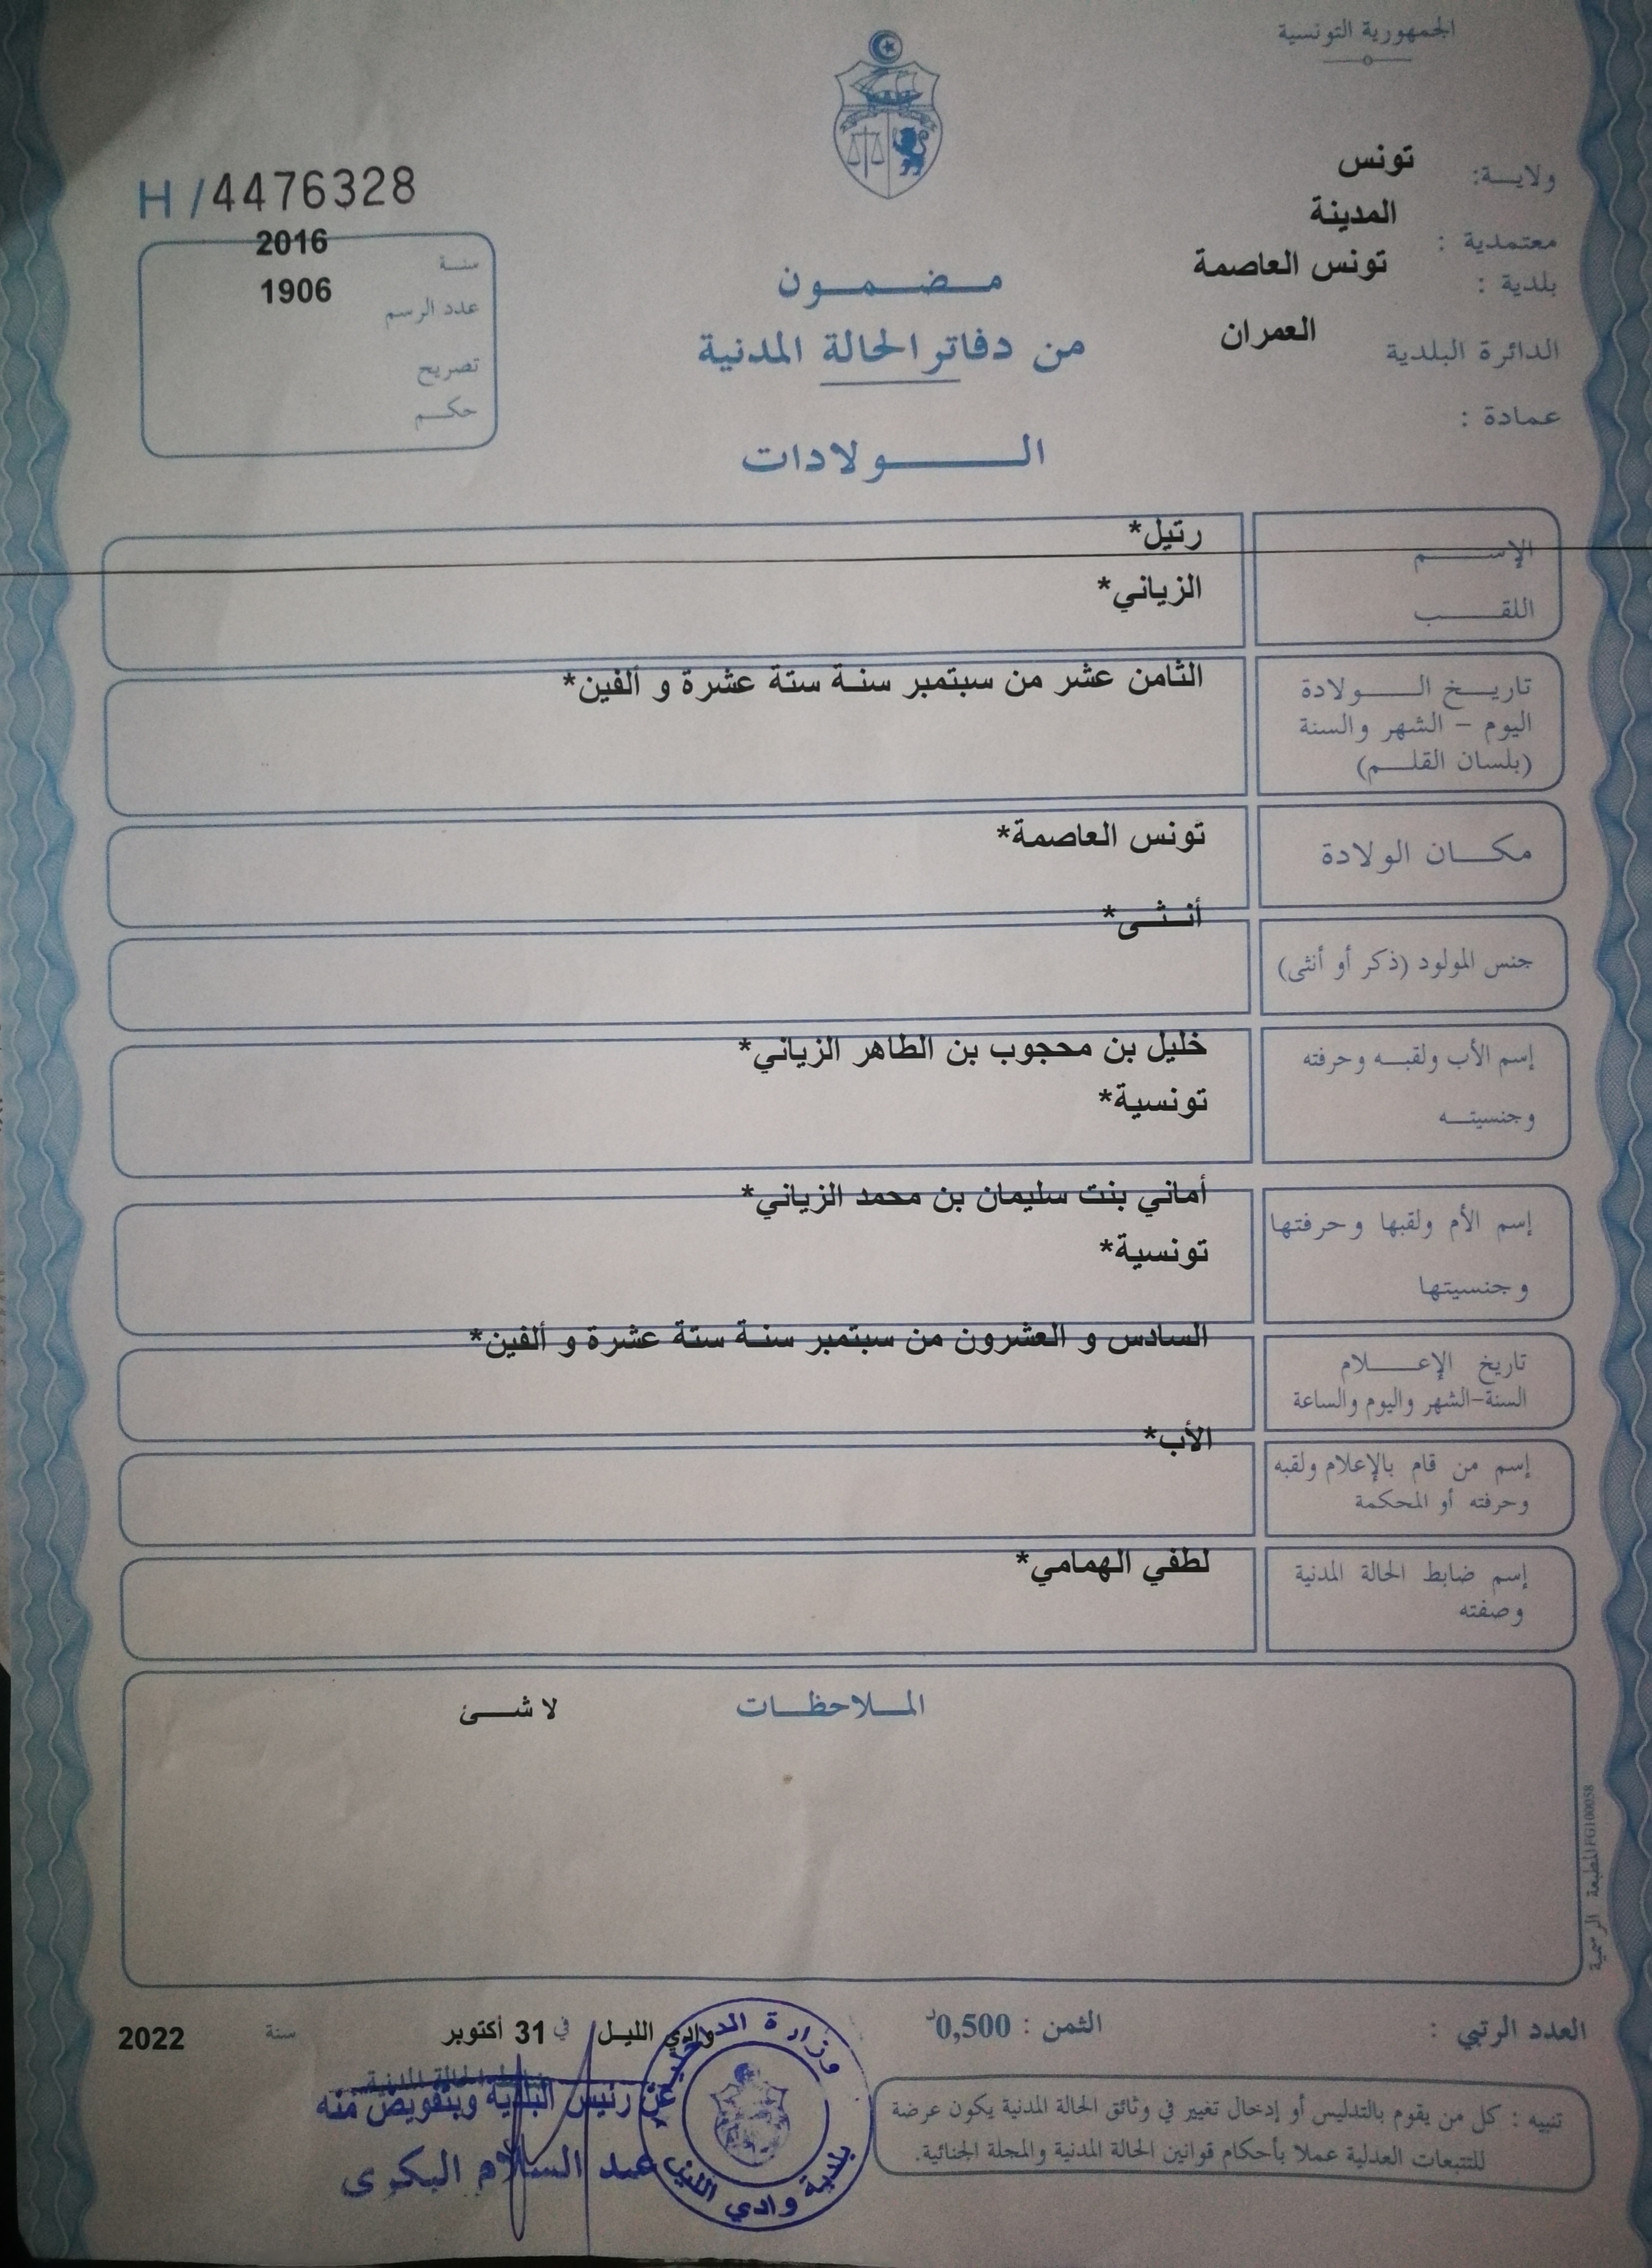 الجمهورية التونسية
ولايـــة: تونس
معتمدية : المدينة
بلدية : تونس العاصمة
الدائرة البلدية العمران
عمادة :
H/4476328
سنـة 2016
عدد الرسم 1906
تصريح
حكـــم
مــضــمــون
من دفاتر الحالة المدنية
الـــــولادات
الإســـــم رتيل*
اللقـــــب الزياني*
تاريـــخ الـــــولادة الثامن عشر من سبتمبر سنة ستة عشرة و ألفين*
اليوم - الشهر والسنة
(بلسان القلـــم)
مكـــان الولادة تونس العاصمة*
جنس المولود (ذكر أو أنثى) أنـثـى*
إسم الأب ولقبـــه وحرفته خليل بن محجوب بن الطاهر الزياني*
وجنسيتـــه تونسية*
إسم الأم ولقبها وحرفتها أماني بنت سليمان بن محمد الزياني*
وجنسيتها تونسية*
تاريخ الإعـــــلام السادس و العشرون من سبتمبر سنة ستة عشرة و ألفين*
السنة-الشهر واليوم والساعة
إسم من قام بالإعلام ولقبه الأب*
وحرفته أو المحكمة
إسم ضابط الحالة المدنية لطفي الهمامي*
وصفته
المــلاحظــات لا شـــئ
المطبعة الرسمية FG100058
العدد الرتبي :
الثمن : 0,500د
وادي الليل في 31 أكتوبر سنة 2022
ضابط الحالة المدنية
عن رئيس البلدية وبتفويض منه
عبد السلام البكري
وزارة الداخلية
بلدية وادي الليل
تنبيه : كل من يقوم بالتدليس أو إدخال تغيير في وثائق الحالة المدنية يكون عرضة
للتتبعات العدلية عملا بأحكام قوانين الحالة المدنية والمجلة الجنائية.